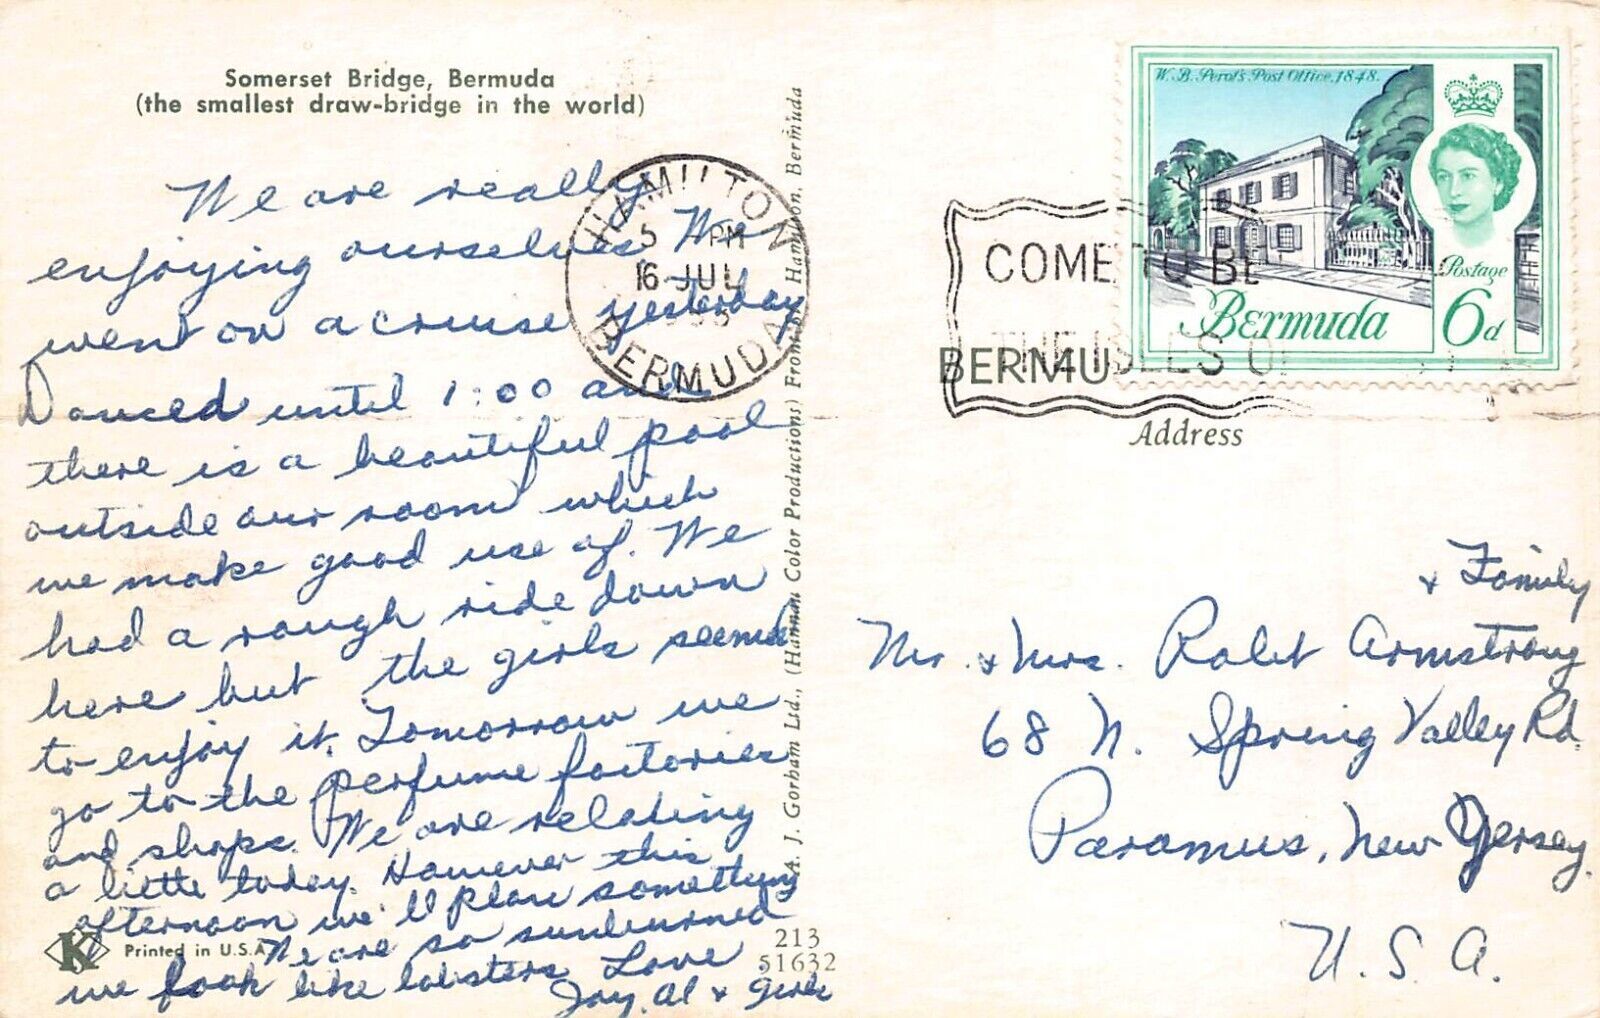 Somerset Bridge, Bermuda
(the smallest draw-bridge in the world)
We are really
enjoying ourselves. We
went on a cruise yesterday
Danced until 1:00 and
there is a beautiful pool
outside our room which
we make good use of. We
had a rough ride down
here but the girls seemed
to enjoy it. Tomorrow we
go to the perfume factories
and shops. We are relating
a little today. However this
afternoon we'll plan something
We are so sunburned
we look like lobsters. Love,
Joy, Al & girls
K Printed in U.S.A.
A. J. Gorham Ltd., (Hannau Color Productions) Front St. Hamilton, Bermuda
213
51632
HAMILTON
5 PM
16 JUL
BERMUDA
COME TO BE
THE ISLES OF
BERMU
W. B. Perot's Post Office, 1848.
Postage
Bermuda 6d
Address
& Family
Mr. & Mrs. Robt Armstrong
68 N. Spring Valley Rd.
Paramus, New Jersey.
U. S. A.